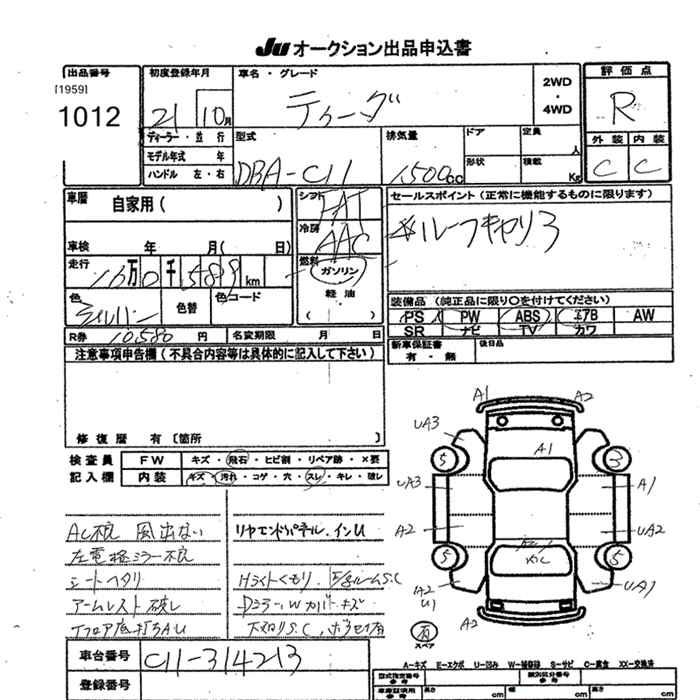 JU オークション出品申込書
出品番号
[1959]
1012
初度登録年月
21 10月
車名・グレード
ティーダ
2WD
・
4WD
評価点
R
外装 内装
C C
ディーラー・並行
モデル年式 年
ハンドル 左・右
型式
DBA-C11
排気量
1500cc
ドア
定員
人
形状
積載
Kg
車歴
自家用( )
車検 年 月( 日)
走行
10万0千589km
色
色替
色コード
シフト
FAT
冷房
AAC
燃料
ガソリン
軽油
( )
セールスポイント(正常に機能するものに限ります)
※ルーフキャリア
装備品(純正品に限り○を付けてください)
PS PW ABS エアB AW
SR ナビ TV カワ
新車保証書
有・無
後日品
R券 10,580円 名変期限 月 日
注意事項申告欄(不具合内容等は具体的に記入して下さい)
修復歴 有〔箇所 〕
検査員
記入欄
FW キズ・飛石・ヒビ割・リペア跡・×要
内装 キズ・汚れ・コゲ・穴・スレ・キレ・破レ
AC不良 風出ない
左電格ミラー不良
シートヘタリ
アームレスト破レ
Fフロア底打ちAU
リヤエンドパネル、インU
Hライトくもり
Dミラー W カバーキズ
下廻りS.C
A1 A2
UA3
A1
5 3
UA3 A1
A2 UA2
5 5
A2
U1
UA1
A2
有
スペア
A-キズ E-エクボ U-凹み W-補修跡 S-サビ C-腐食 XX-交換済
車台番号 C11-314213
登録番号
型式指定番号
参考
類別区分番号
参考
車庫証明用
参考
長さ cm 幅 cm 高さ cm